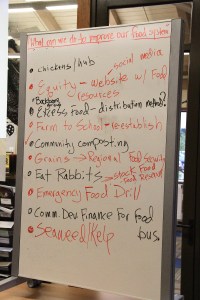 What can we do to improve our food system
• chickens/hub
social media
• Equity - website w/ Food resources
• Backbone
• Excess food - distribution network?
• Farm to School - reestablish
• Community composting
• Grains → Regional Food Security
• Eat Rabbits → stock food food Reserves
• Emergency Food Drill
• Comm. Dev Finance For food bus.
• Seaweed/Kelp